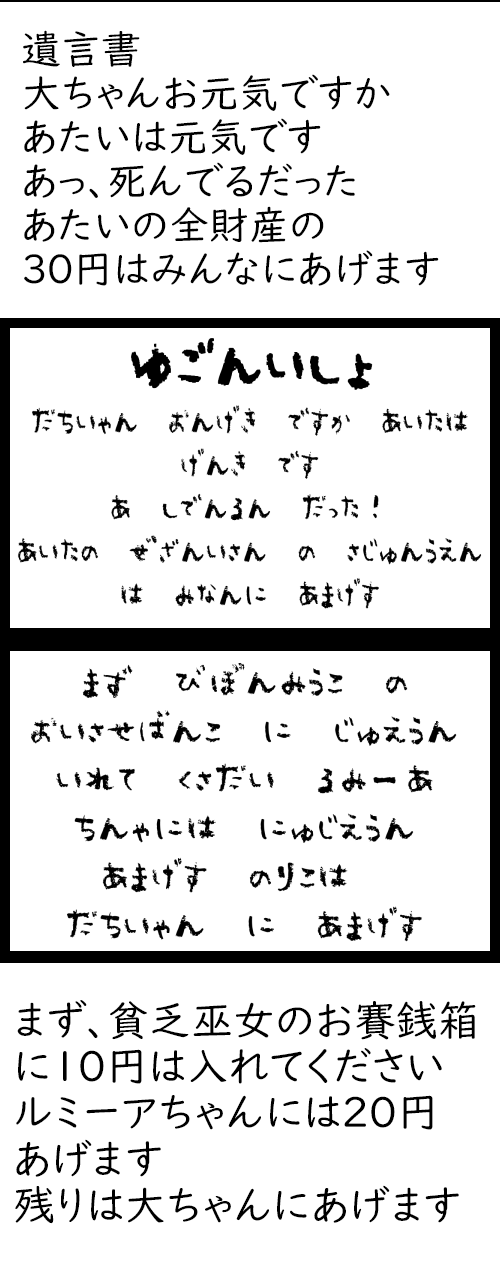 遺言書
大ちゃんお元気ですか
あたいは元気です
あっ、死んでるだった
あたいの全財産の
30円はみんなにあげます
ゆごんいしょ
だちいゃん おんげき ですか あいたは
げんき です
あ しでんるん だった!
あいたの ぜざんいさん の さじゅんうえん
は みなんに あまげす
まず びぼんみうこ の
おいさせばんこ に じゅえうん
いれて くさだい るみーあ
ちんゃには にゅじえうん
あまげす のりこは
だちいゃん に あまげす
まず、貧乏巫女のお賽銭箱
に10円は入れてください
ルミーアちゃんには20円
あげます
残りは大ちゃんにあげます